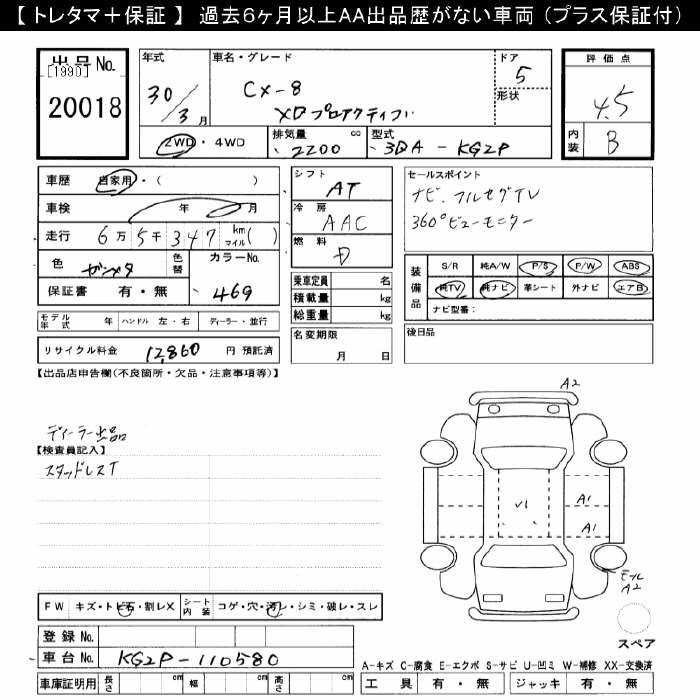 【 トレタマ＋保証 】 過去6ヶ月以上AA出品歴がない車両 (プラス保証付)
出品 No.
[1990]
20018
年式 30/3月
車名・グレード CX-8
XDプロアクティブ
ドア 5
形状
2WD・4WD
排気量 2200 cc
型式 3DA-KG2P
評価点 4.5
内装 B
車歴 自家用・( )
車検 年 月
走行 6万5千347 km マイル( )
色 ガンメタ
色替
カラーNo. 469
保証書 有・無
シフト AT
冷房 AAC
燃料 D
乗車定員 名
積載量 kg
総重量 kg
セールスポイント
ナビ、フルセグTV
360°ビューモニター
装備品
S/R 純A/W P/S P/W ABS
純TV 純ナビ 革シート 外ナビ エアB
ナビ型番:
モデル年式 年 ハンドル 左・右 ディーラー・並行
名変期限 月 日
後日品
リサイクル料金 12,860 円 預託済
【出品店申告欄(不良箇所・欠品・注意事項等)】
ディーラー出品
【検査員記入】
スタッドレスT
A2
A1
A1
モール
A2
スペア
FW キズ・トビ石・割レX
シート内装 コゲ・穴・汚レ・シミ・破レ・スレ
登録 No.
車台 No. KG2P-110580
車庫証明用 長さ cm 幅 cm 高さ cm
A-キズ C-腐食 E-エクボ S-サビ U-凹ミ W-補修 XX-交換済
工具 有・無 ジャッキ 有・無